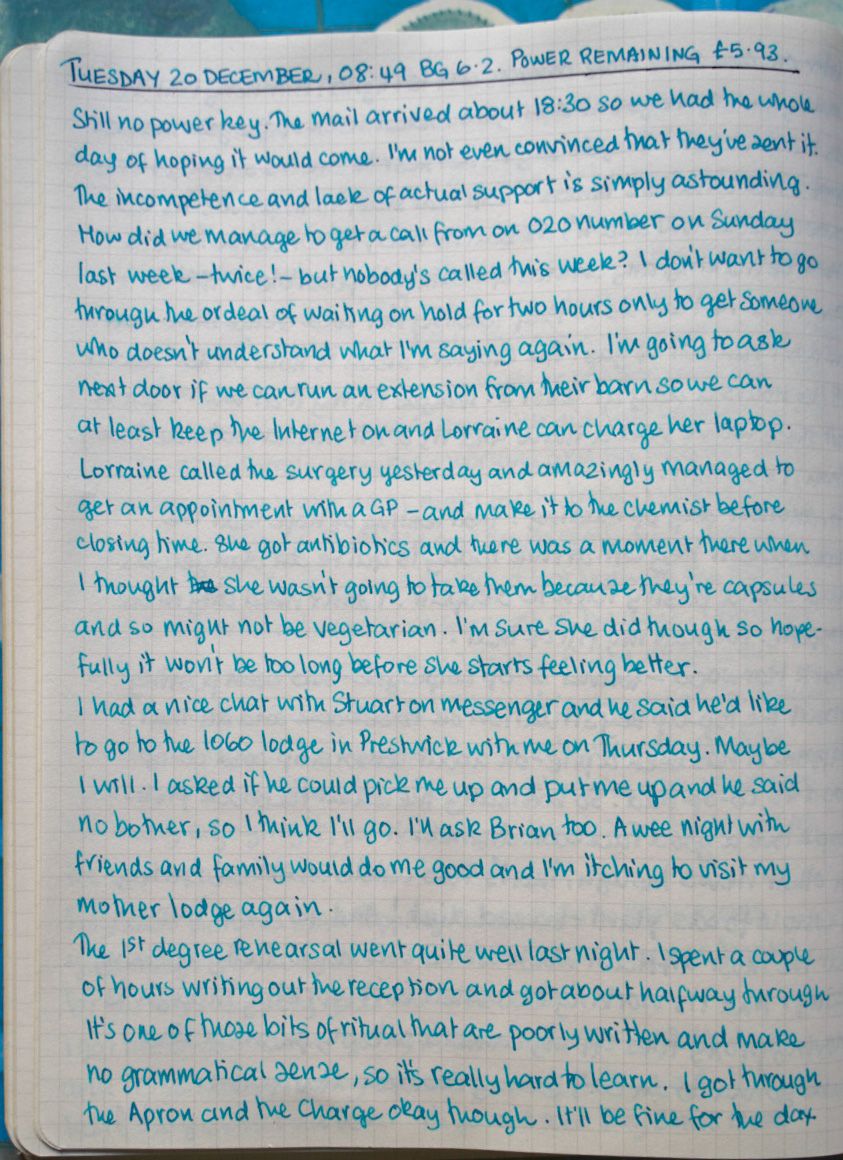 TUESDAY 20 DECEMBER, 08:49 BG 6.2. POWER REMAINING £5.93.
Still no power key. The mail arrived about 18:30 so we had the whole
day of hoping it would come. I'm not even convinced that they've sent it.
The incompetence and lack of actual support is simply astounding.
How did we manage to get a call from on 020 number on Sunday
last week – twice! – but nobody's called this week? I don't want to go
through the ordeal of waiting on hold for two hours only to get someone
who doesn't understand what I'm saying again. I'm going to ask
next door if we can run an extension from their barn so we can
at least keep the Internet on and Lorraine can charge her laptop.
Lorraine called the surgery yesterday and amazingly managed to
get an appointment with a GP – and make it to the chemist before
closing time. She got antibiotics and there was a moment there when
I thought she wasn't going to take them because they're capsules
and so might not be vegetarian. I'm sure she did though so hope-
fully it won't be too long before she starts feeling better.
I had a nice chat with Stuart on messenger and he said he'd like
to go to the 1060 lodge in Prestwick with me on Thursday. Maybe
I will. I asked if he could pick me up and put me up and he said
no bother, so I think I'll go. I'll ask Brian too. A wee night with
friends and family would do me good and I'm itching to visit my
mother lodge again.
The 1st degree rehearsal went quite well last night. I spent a couple
of hours writing out the reception and got about halfway through
It's one of those bits of ritual that are poorly written and make
no grammatical sense, so it's really hard to learn. I got through
the Apron and the Charge okay though. It'll be fine for the day.